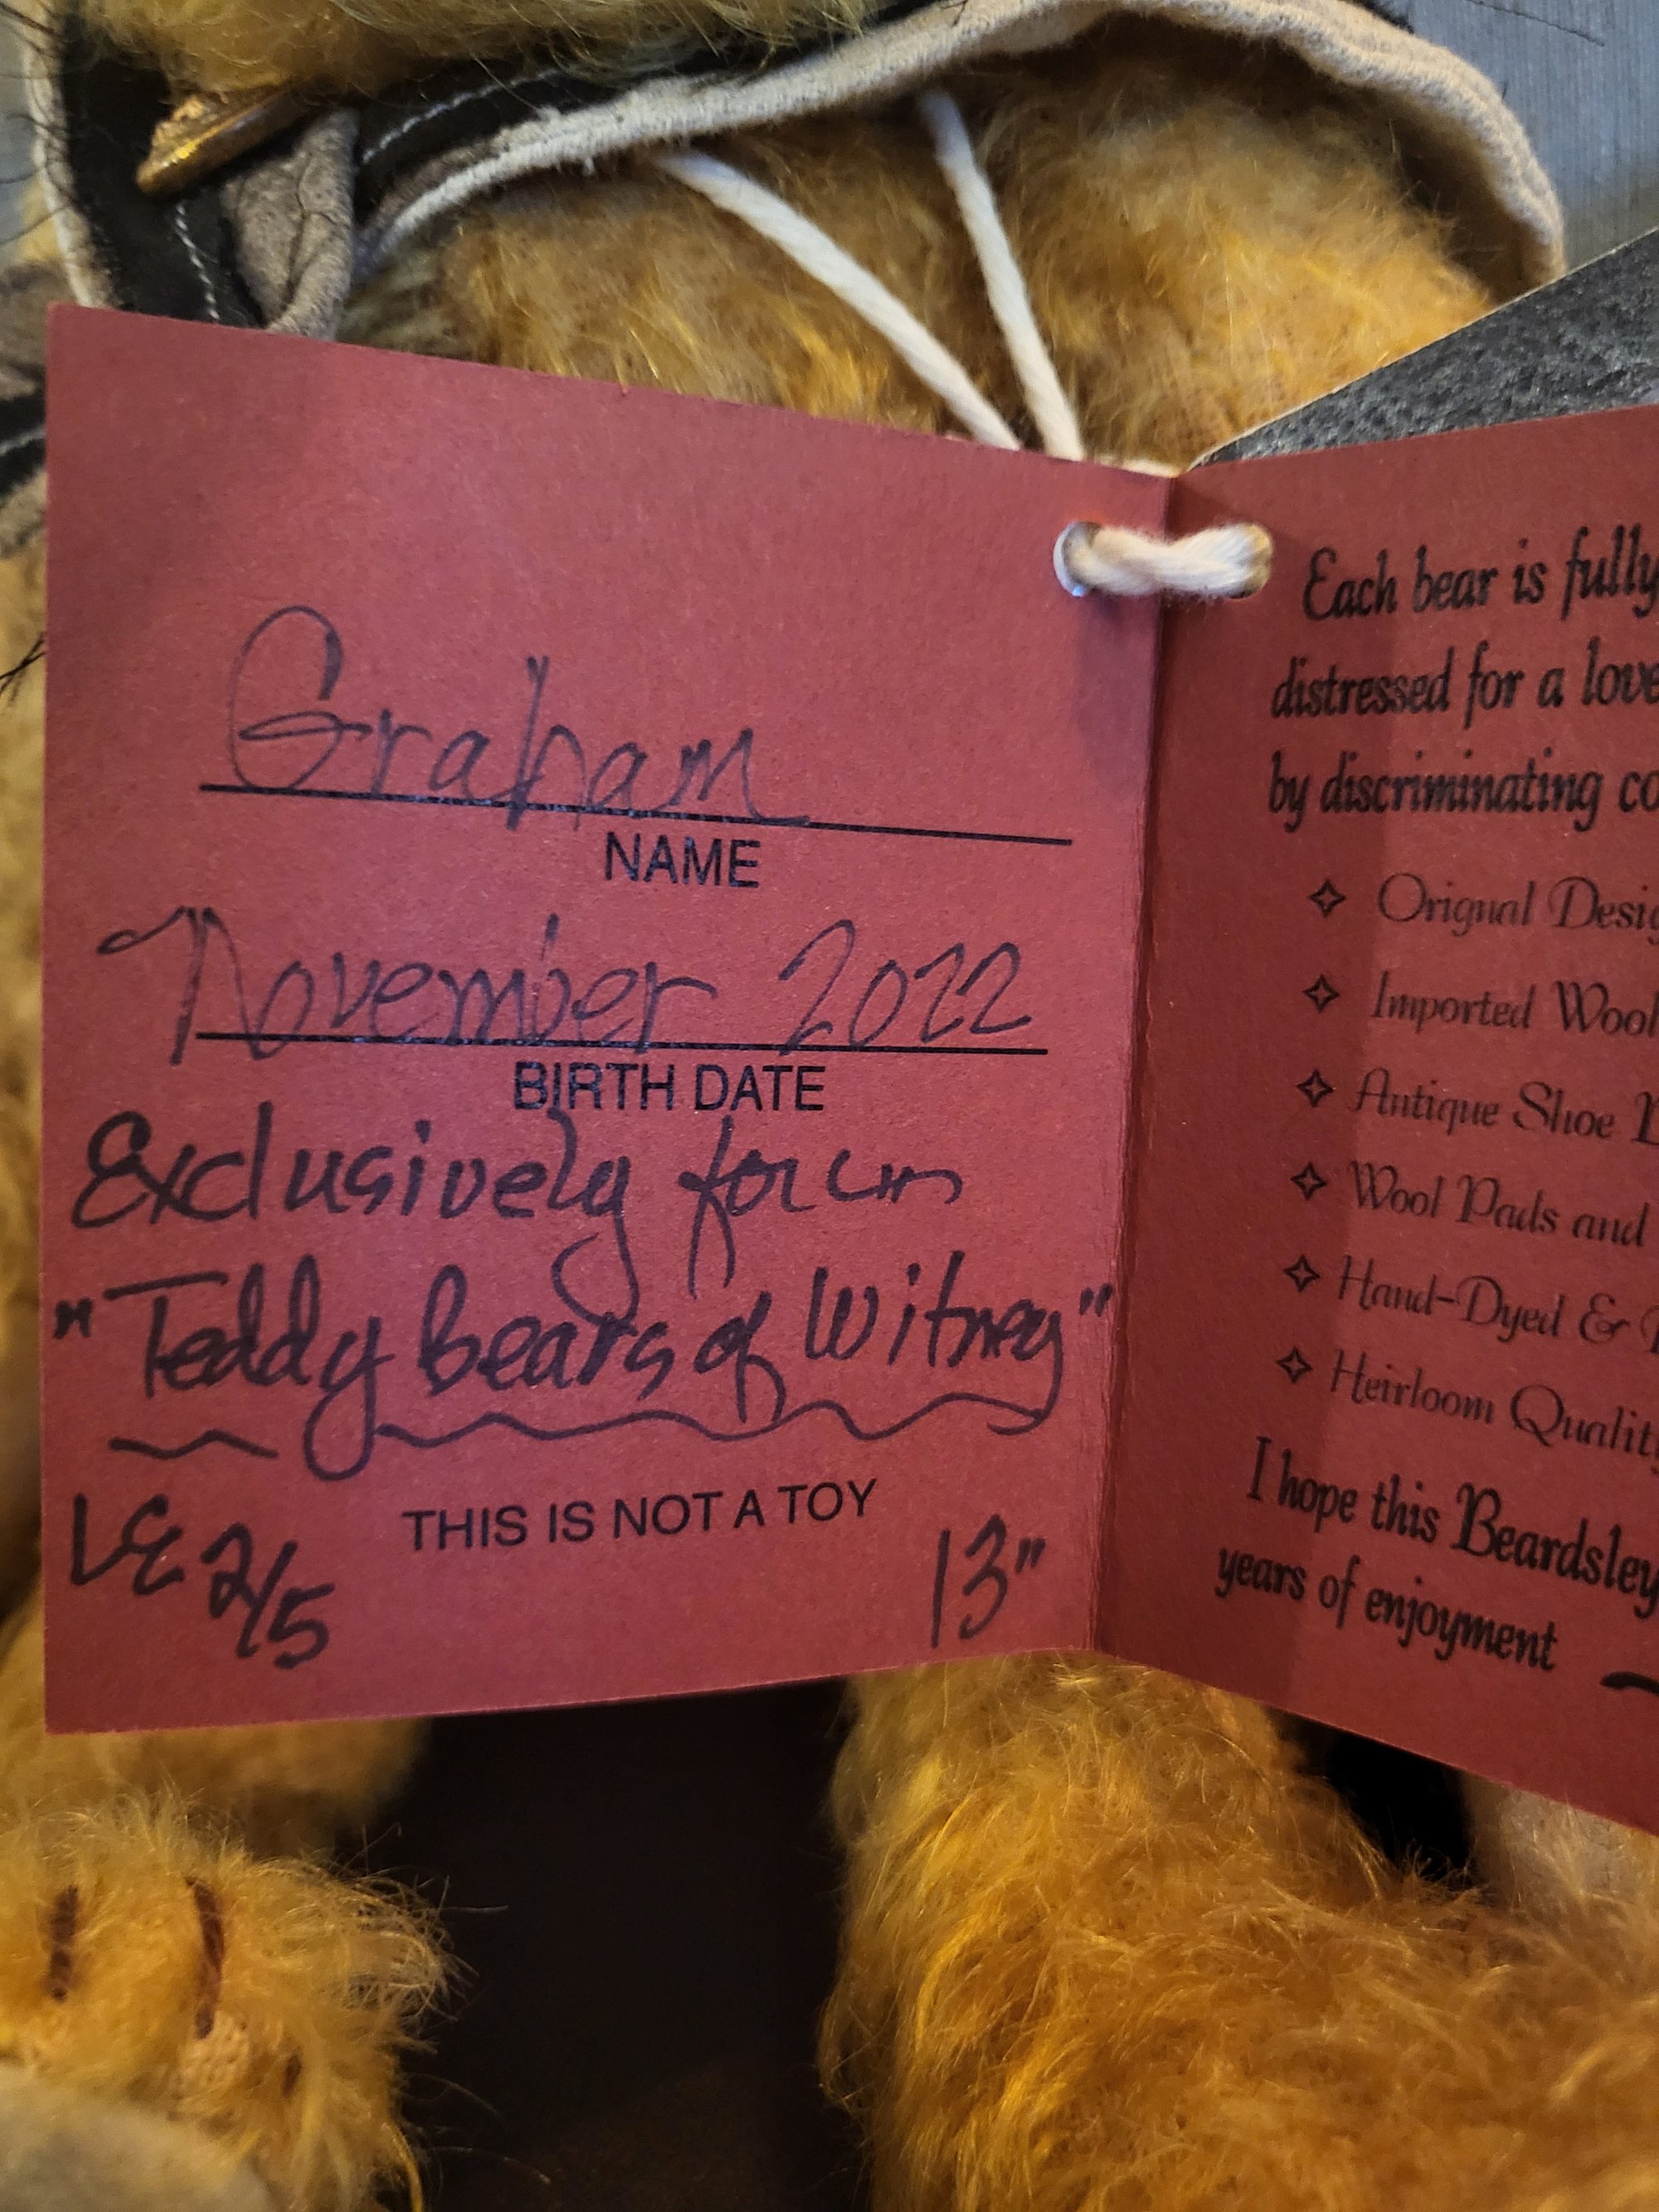 Graham
NAME
November 2022
BIRTH DATE
Exclusively for
"Teddy Bears of Witney"
THIS IS NOT A TOY
LE 2/5
13"
Each bear is fully
distressed for a love
by discriminating co
✧ Orignal Desig
✧ Imported Wool
✧ Antique Shoe
✧ Wool Pads and
✧ Hand-Dyed &
✧ Heirloom Quality
I hope this Beardsley
years of enjoyment